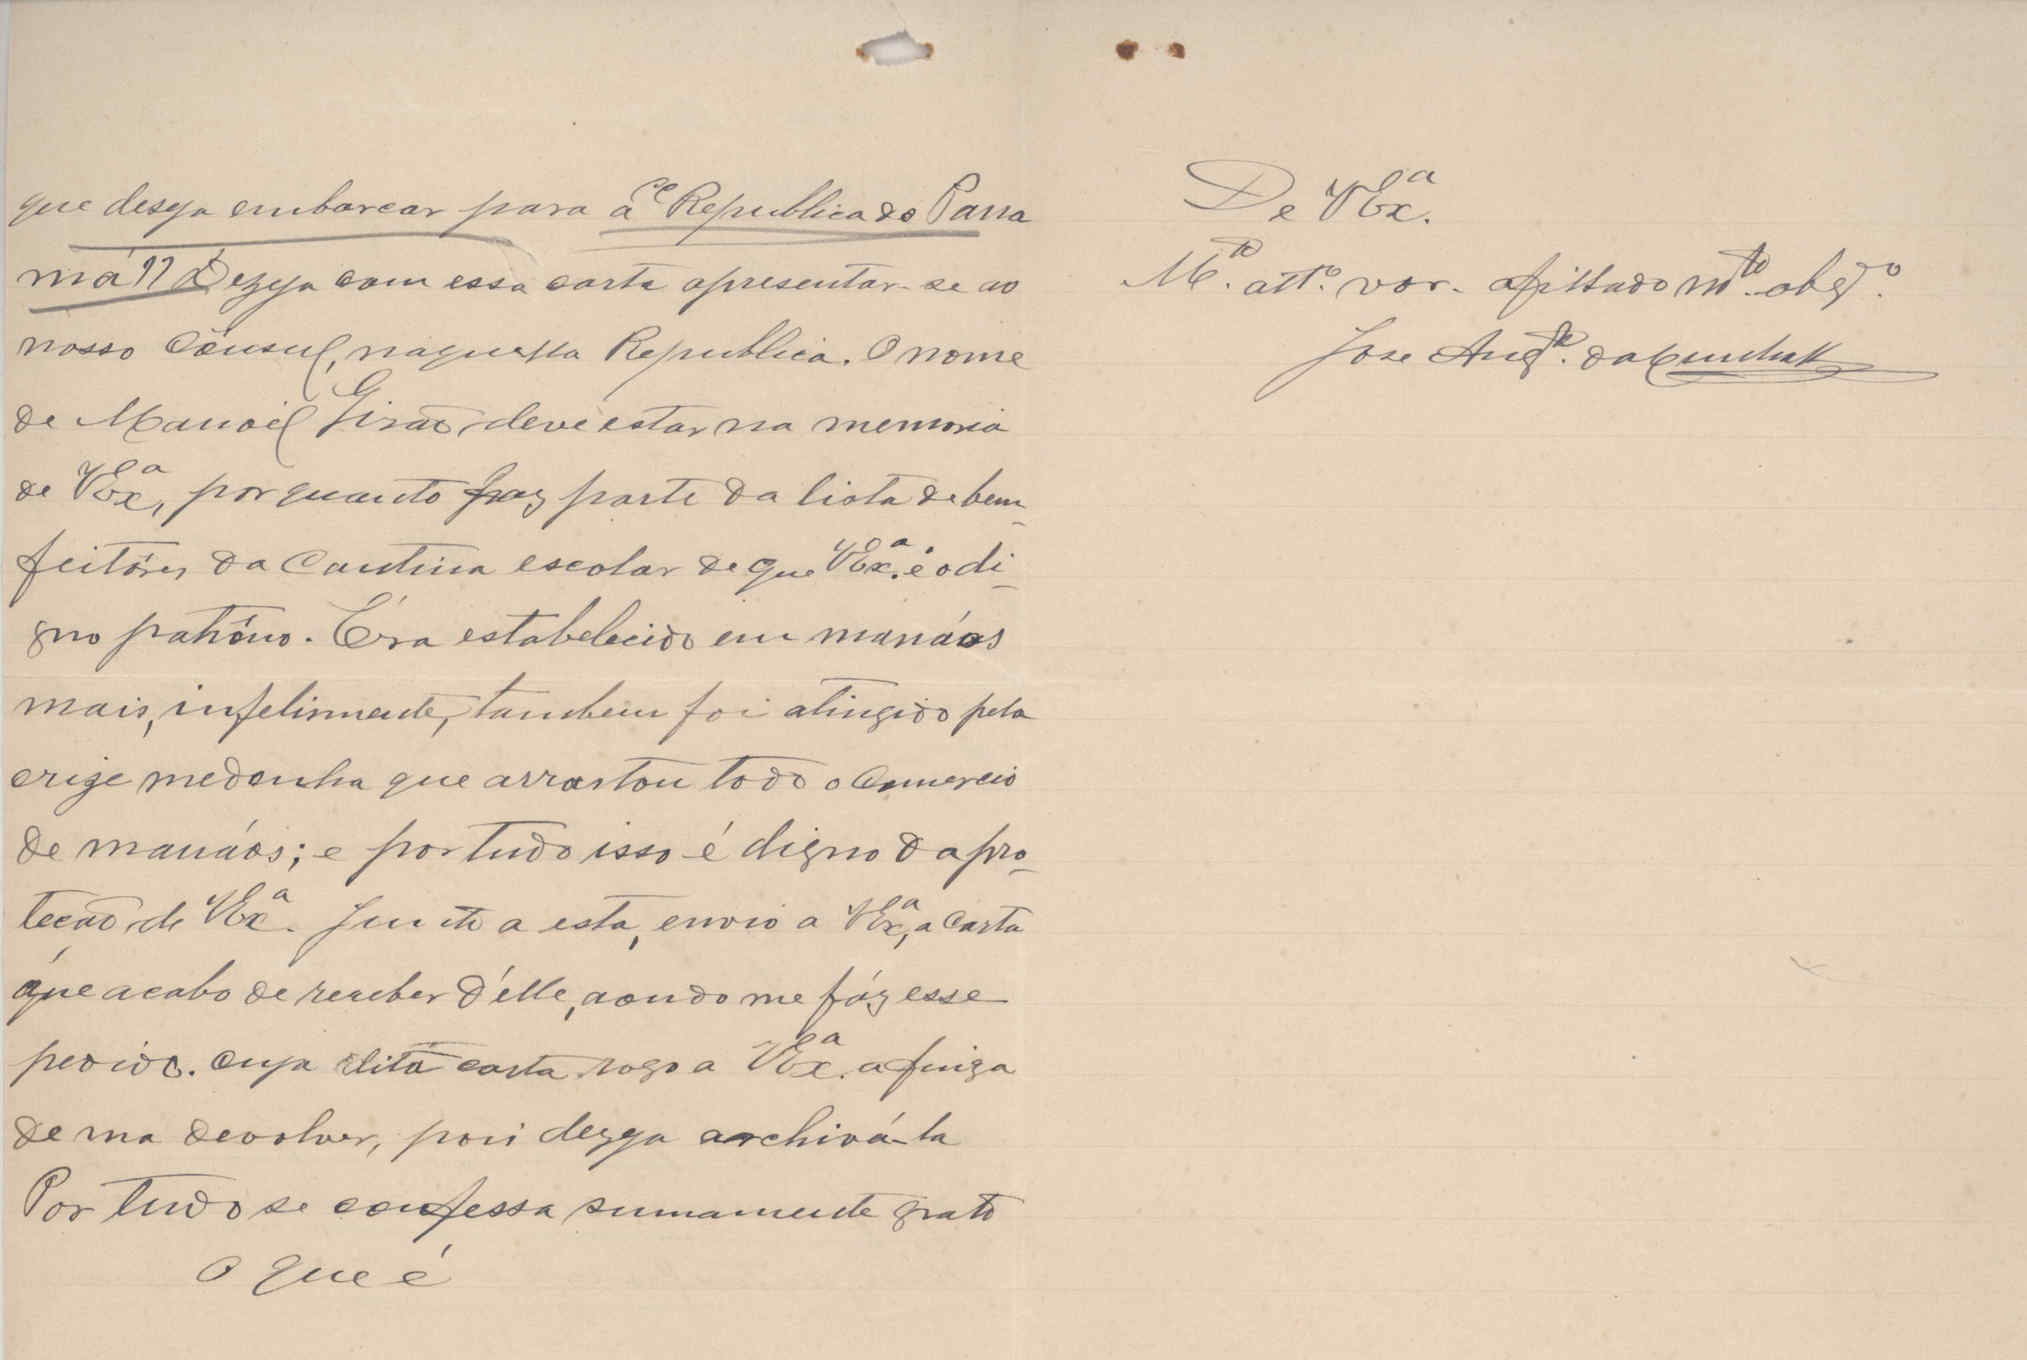 que deseja embarcar para a Republica do Pana
má" Dezeja com essa carta apresentar-se ao
nosso Consul, naquella Republica. O nome
de Manoel Girão, deve estar na memoria
de VExª, porquanto faz parte da lista de bem-
feitóres da Cantina escolar de que VExª. é o di-
gno patrôno. Éra estabelecido em manáos
mais, infelismente, tambem foi atingido pela
crize medonha que arrastou todo o Comercio
de manáos; e por tudo isso é digno da pro-
teção, de VExª. Junto a esta, envio a VExª, a Carta
que acabo de receber d'élle, aondo me fáz esse
pedido. Cuja dita carta rogo a VExª. a finêza
de ma devolver, pois dezeja archivá-la
Por tudo se confessa sumamente grato
O que é
De VExª.
M.to att.o vor. afilhado m.to obgd.o
Jose Aug.to da Cunha